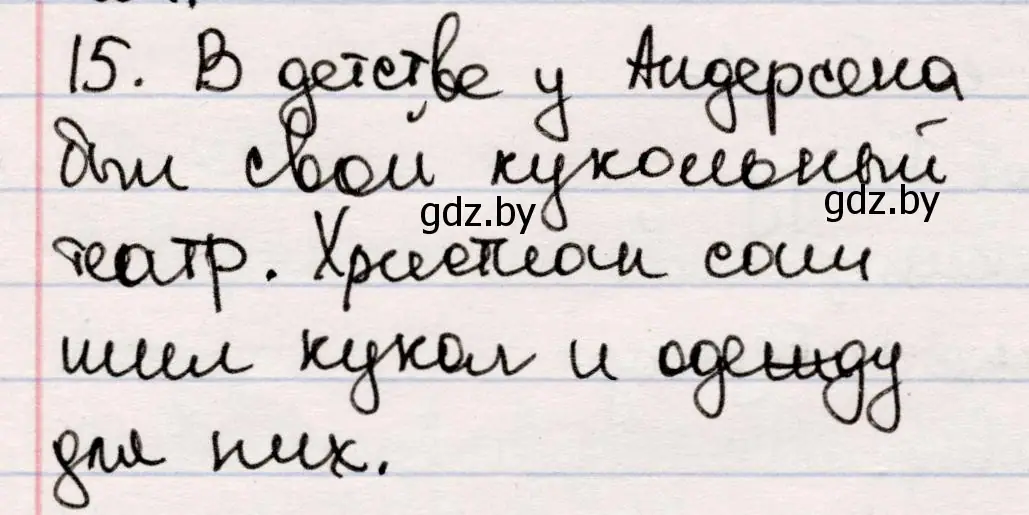 15. В детстве у Андерсена
был свой кукольный
gdz.by
gdz.by
театр. Христиан сам
шил кукол и одежду
для них.